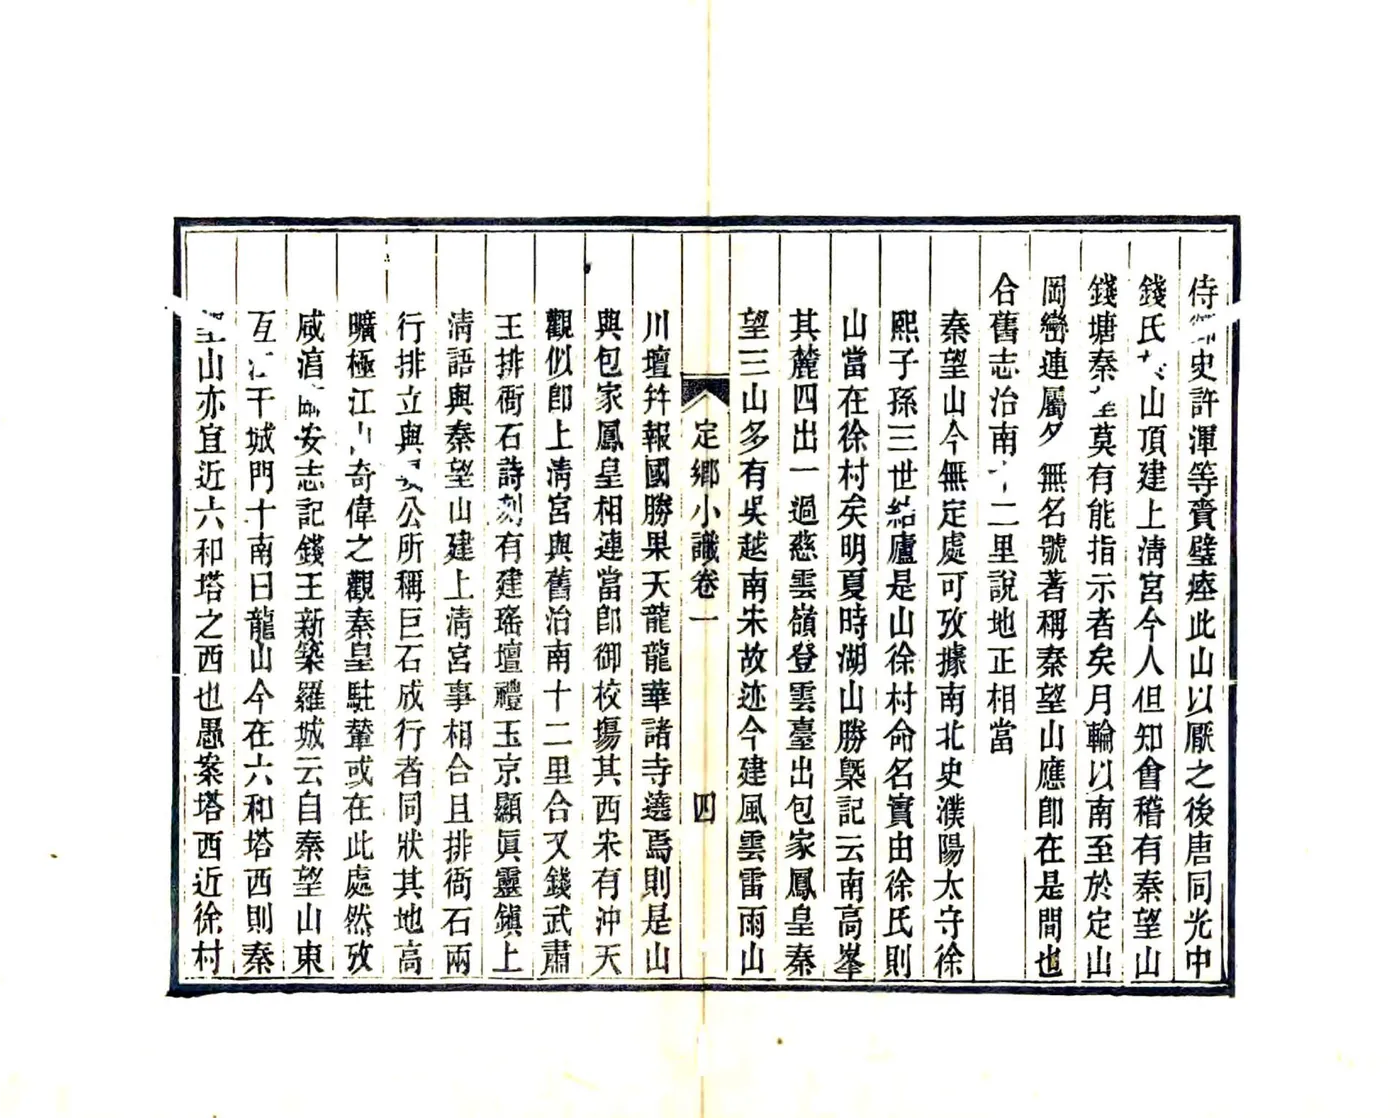 侍史許渾等賫璧瘞此山以厭之後唐同光中
錢氏山頂建上淸宮今人但知會稽有秦望山
錢塘秦莫有能指示者矣月輪以南至於定山
岡巒連屬夕無名號著稱秦望山應卽在是間也
合舊志治南十二里說地正相當
秦望山今無定處可攷據南北史濮陽太守徐
熙子孫三世結廬是山徐村命名實由徐氏則
山當在徐村矣明夏時湖山勝槩記云南高峯
其麓四出一過慈雲嶺登雲臺出包家鳳皇秦
望三山多有吳越南宋故迹今建風雲雷雨山
定鄉小識卷一 四
川壇幷報國勝果天龍龍華諸寺遶焉則是山
與包家鳳皇相連當卽御校場其西宋有沖天
觀似卽上淸宮與舊治南十二里合又錢武肅
王排衙石詩刻有建瑤壇禮玉京顯眞靈鎭上
淸語與秦望山建上淸宮事相合且排衙石兩
行排立與公所稱巨石成行者同狀其地高
曠極江山奇偉之觀秦皇駐輦或在此處然攷
咸淳臨安志記錢王新築羅城云自秦望山東
亙江干城門十南曰龍山今在六和塔西則秦
望山亦宜近六和塔之西也愚案塔西近徐村